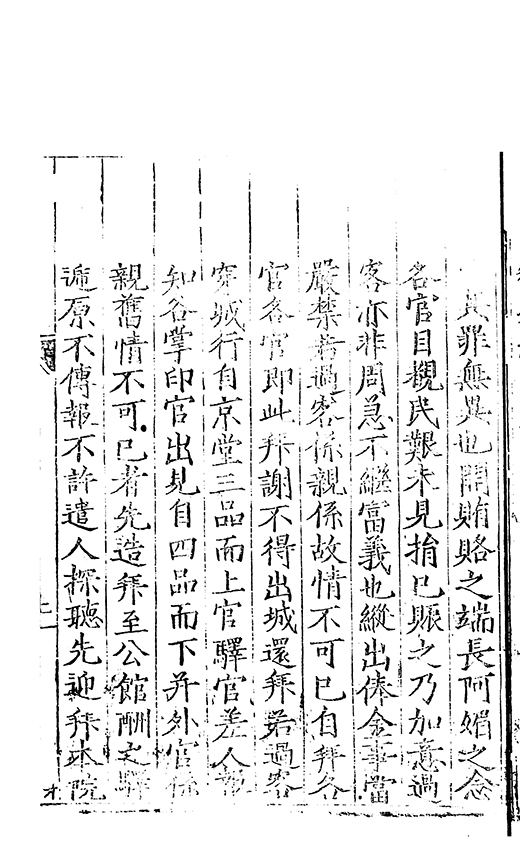 其罪無異也開賄賂之端長阿媚之念
各官目覩民艱未見捐已賑之乃加意過
客亦非周急不繼富義也縱出俸金事當
嚴禁若過客係親係故情不可已自拜各
官各官即此拜謝不得出城還拜若過客
穿城行自京堂三品而上官驛官差人報
知各掌印官出見自四品而下并外官係
親舊情不可已者先造拜至公館酬之驛
遞原不傳報不許遣人探聽先迎拜本院